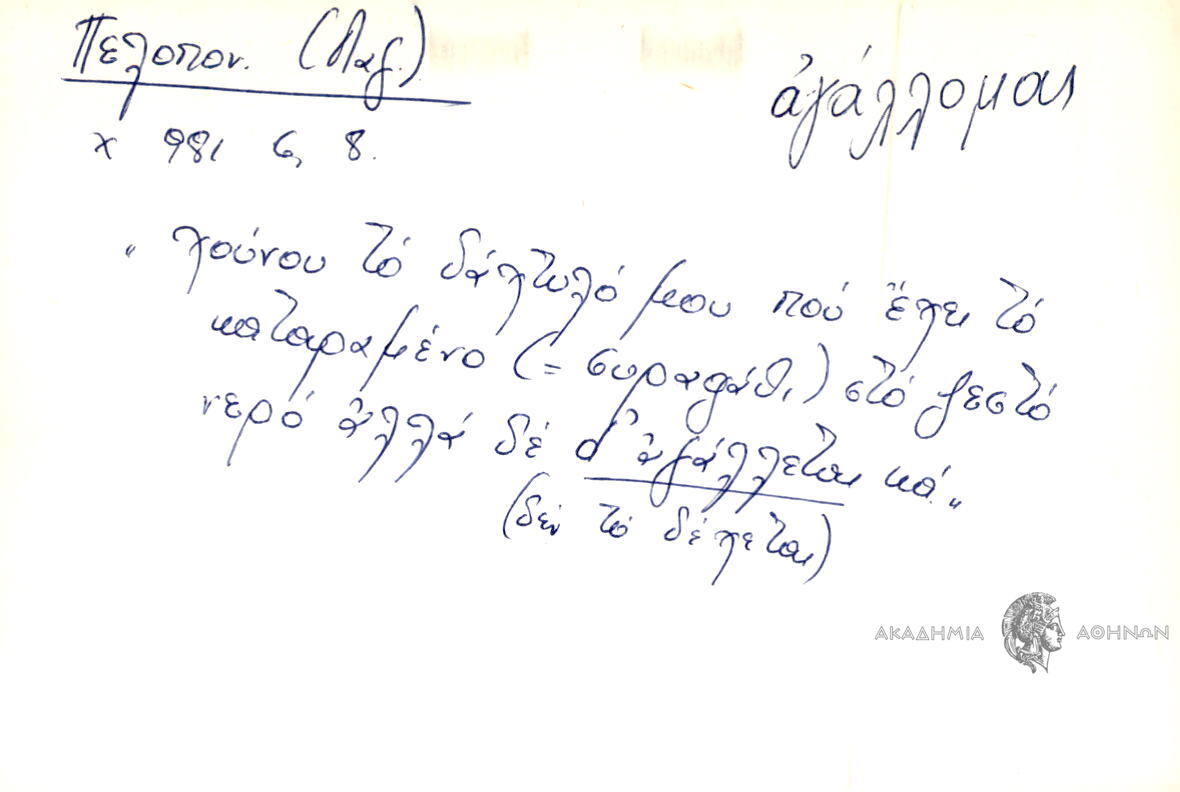 Πελοπον. (Λαγ.)
ἀγάλλομαι
χ 981 6, 8.
" χούνου τό δάχτυλό μου πού ἔχει τό
καταραμένο (= συραφάθι) στό ζεστό
νερό ἀλλά δέ d' ἀγάλλεται κά. "
(δέν τό δέχεται)
ΑΚΑΔΗΜΙΑ ΑΘΗΝΩΝ